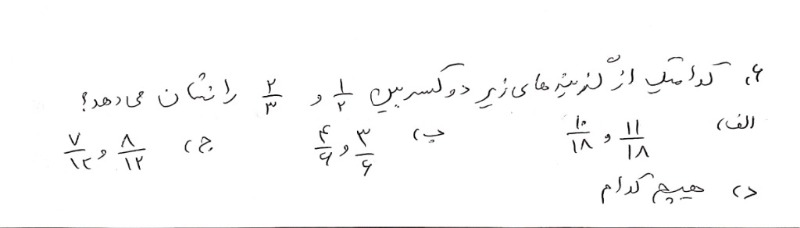 ۶، کدامیک از گزینه های زیر دو کسر بین ۱/۲ و ۲/۳ را نشان می دهد؟
الف) ۱۱/۱۸ و ۱۰/۱۸ ب) ۳/۶ و ۴/۶ ج) ۸/۱۲ و ۷/۱۲
د) هیچ کدام